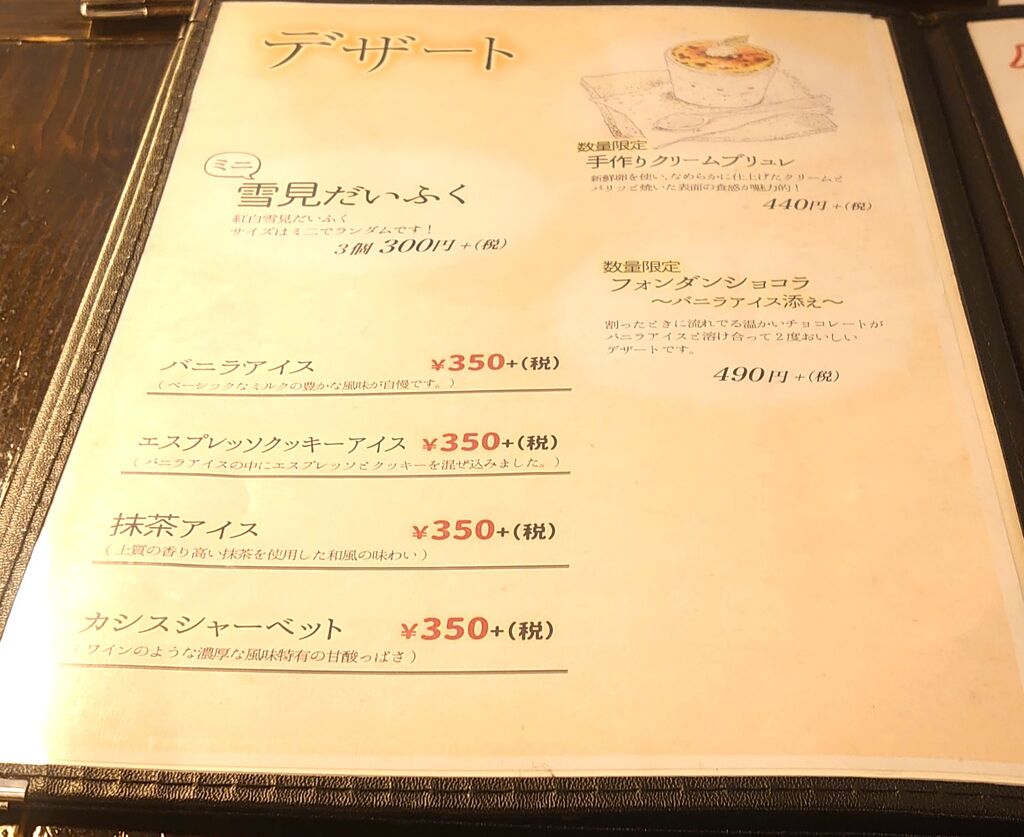 デザート
ミニ
雪見だいふく
紅白雪見だいふく
サイズはミニでランダムです！
3個 300円+(税)
バニラアイス ¥350+(税)
（ベーシックなミルクの豊かな風味が自慢です。）
エスプレッソクッキーアイス ¥350+(税)
（バニラアイスの中にエスプレッソとクッキーを混ぜ込みました。）
抹茶アイス ¥350+(税)
（上質の香り高い抹茶を使用した和風の味わい）
カシスシャーベット ¥350+(税)
（ワインのような濃厚な風味特有の甘酸っぱさ）
数量限定
手作りクリームブリュレ
新鮮卵を使い、なめらかに仕上げたクリームと
パリッと焼いた表面の食感が魅力的！
440円+(税)
数量限定
フォンダンショコラ
〜バニラアイス添え〜
割ったときに流れでる温かいチョコレートが
バニラアイスと溶け合って2度おいしい
デザートです。
490円+(税)